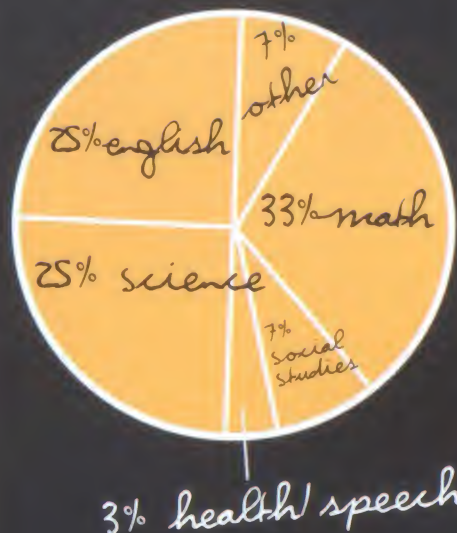 7%
other
25% english
33% math
25% science
7%
social
studies
3% health/speech